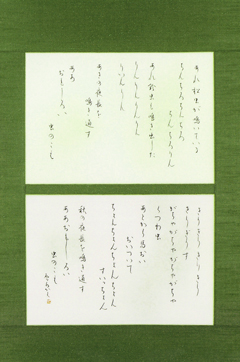 あれ松虫が鳴いている
ちんちろちんちろ
ちんちろりん
あれ鈴虫も鳴き出した
りんりんりんりん
りいんりん
あきの夜長を
鳴き通す
ああ
おもしろい
虫のこえ
きりきりきりきり
きりぎりす
がちゃがちゃがちゃがちゃ
くつわ虫
あとから馬おい
おいついて
ちょんちょんちょんちょん
すいっちょん
秋の夜長を鳴き通す
ああおもしろい
虫のこえ